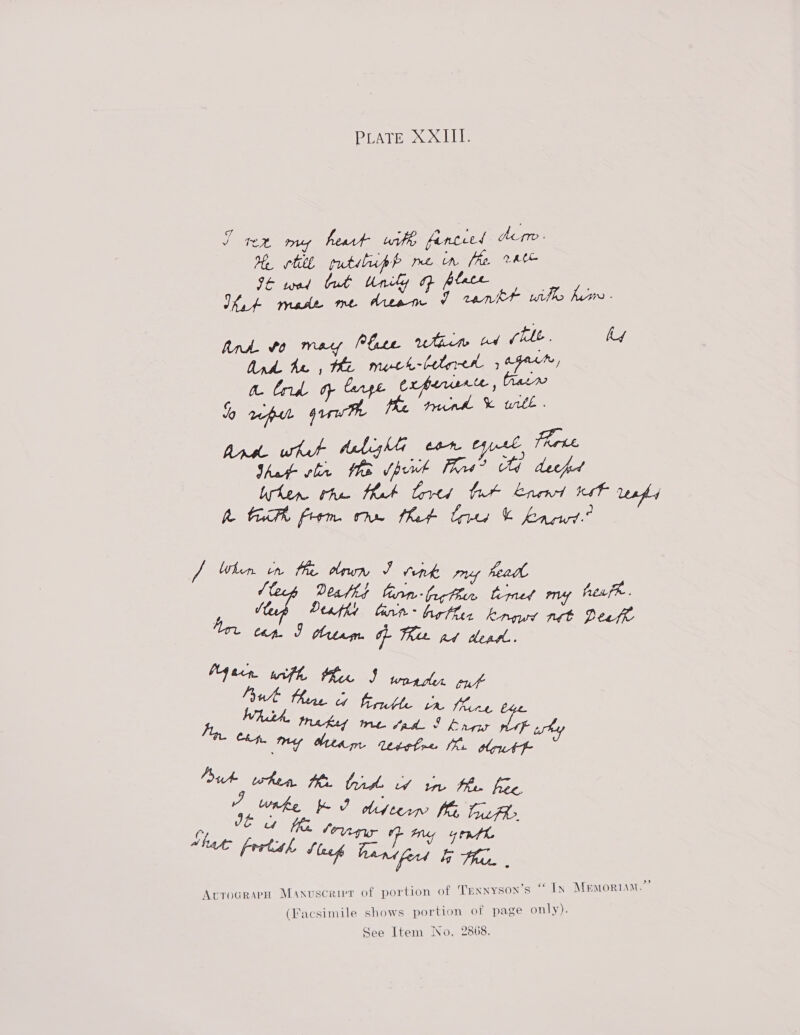 PLATE XXIII.
I vex my heart with fancies dim.
He still outstript me in the race
It was but Unity of place
That made me dream I rankt with him.
And so may Place retain us still. by
And he, the much-beloved, again,
A lord of large experience, train
To riper growth the mind & will.
And what delights can equal those
That stir the spirit's deeps
When one that loves but knows not reaps
A truth from one that loves & knows?
When in the down I sink my head
Sleep Death's twin-brother times my breath.
Sleep Death's twin-brother knows not Death
Nor can I dream of Thee as dead.
Again with thee I wander out
But there is trouble in thine eye
Which makes me sad I know not why
Nor can my dream resolve the doubt
But when the bird is in the tree
I wake & I discern the truth.
It is the sorrow of my youth
That foolish sleep transfers to Thee.
AUTOGRAPH MANUSCRIPT of portion of TENNYSON'S "IN MEMORIAM."
(Facsimile shows portion of page only).
See Item No. 2868.